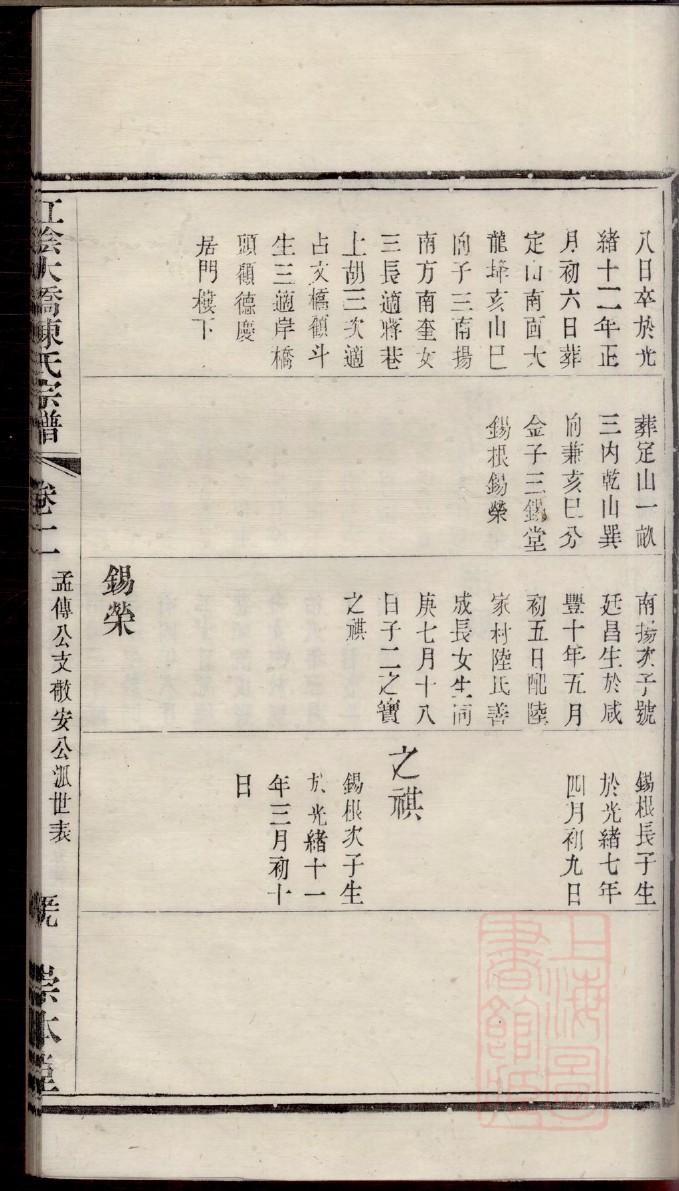 八日卒於光
緒十二年正
月初六日葬
定山南面大
龍埄亥山巳
向子三南揚
南方南奎女
三長適蔣巷
上胡三次適
占文橋顧斗
生三適岸橋
頭顧德慶
居門樓下
葬定山一畝
三內乾山巽
向兼亥巳分
金子三錫堂
錫根錫榮
南揚次子號
廷昌生於咸
豐十年五月
初五日配陸
家村陸氏善
成長女生同
庚七月十八
日子二之寶
之祺
錫榮
錫根長子生
於光緒七年
四月初九日
之祺
錫根次子生
於光緒十一
年三月初十
日
江陰大橋陳氏宗譜
卷二
孟傳公支敬安公派世表
崇本堂
上海圖
書館藏